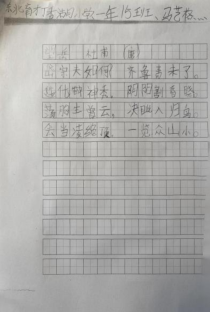 小学一年 班
杜甫 (唐)
岱宗夫如何? 齐鲁青未了。
造化钟神秀, 阴阳割昏晓。
胸生曾云, 决眦入归鸟。
会当凌绝顶, 一览众山小。